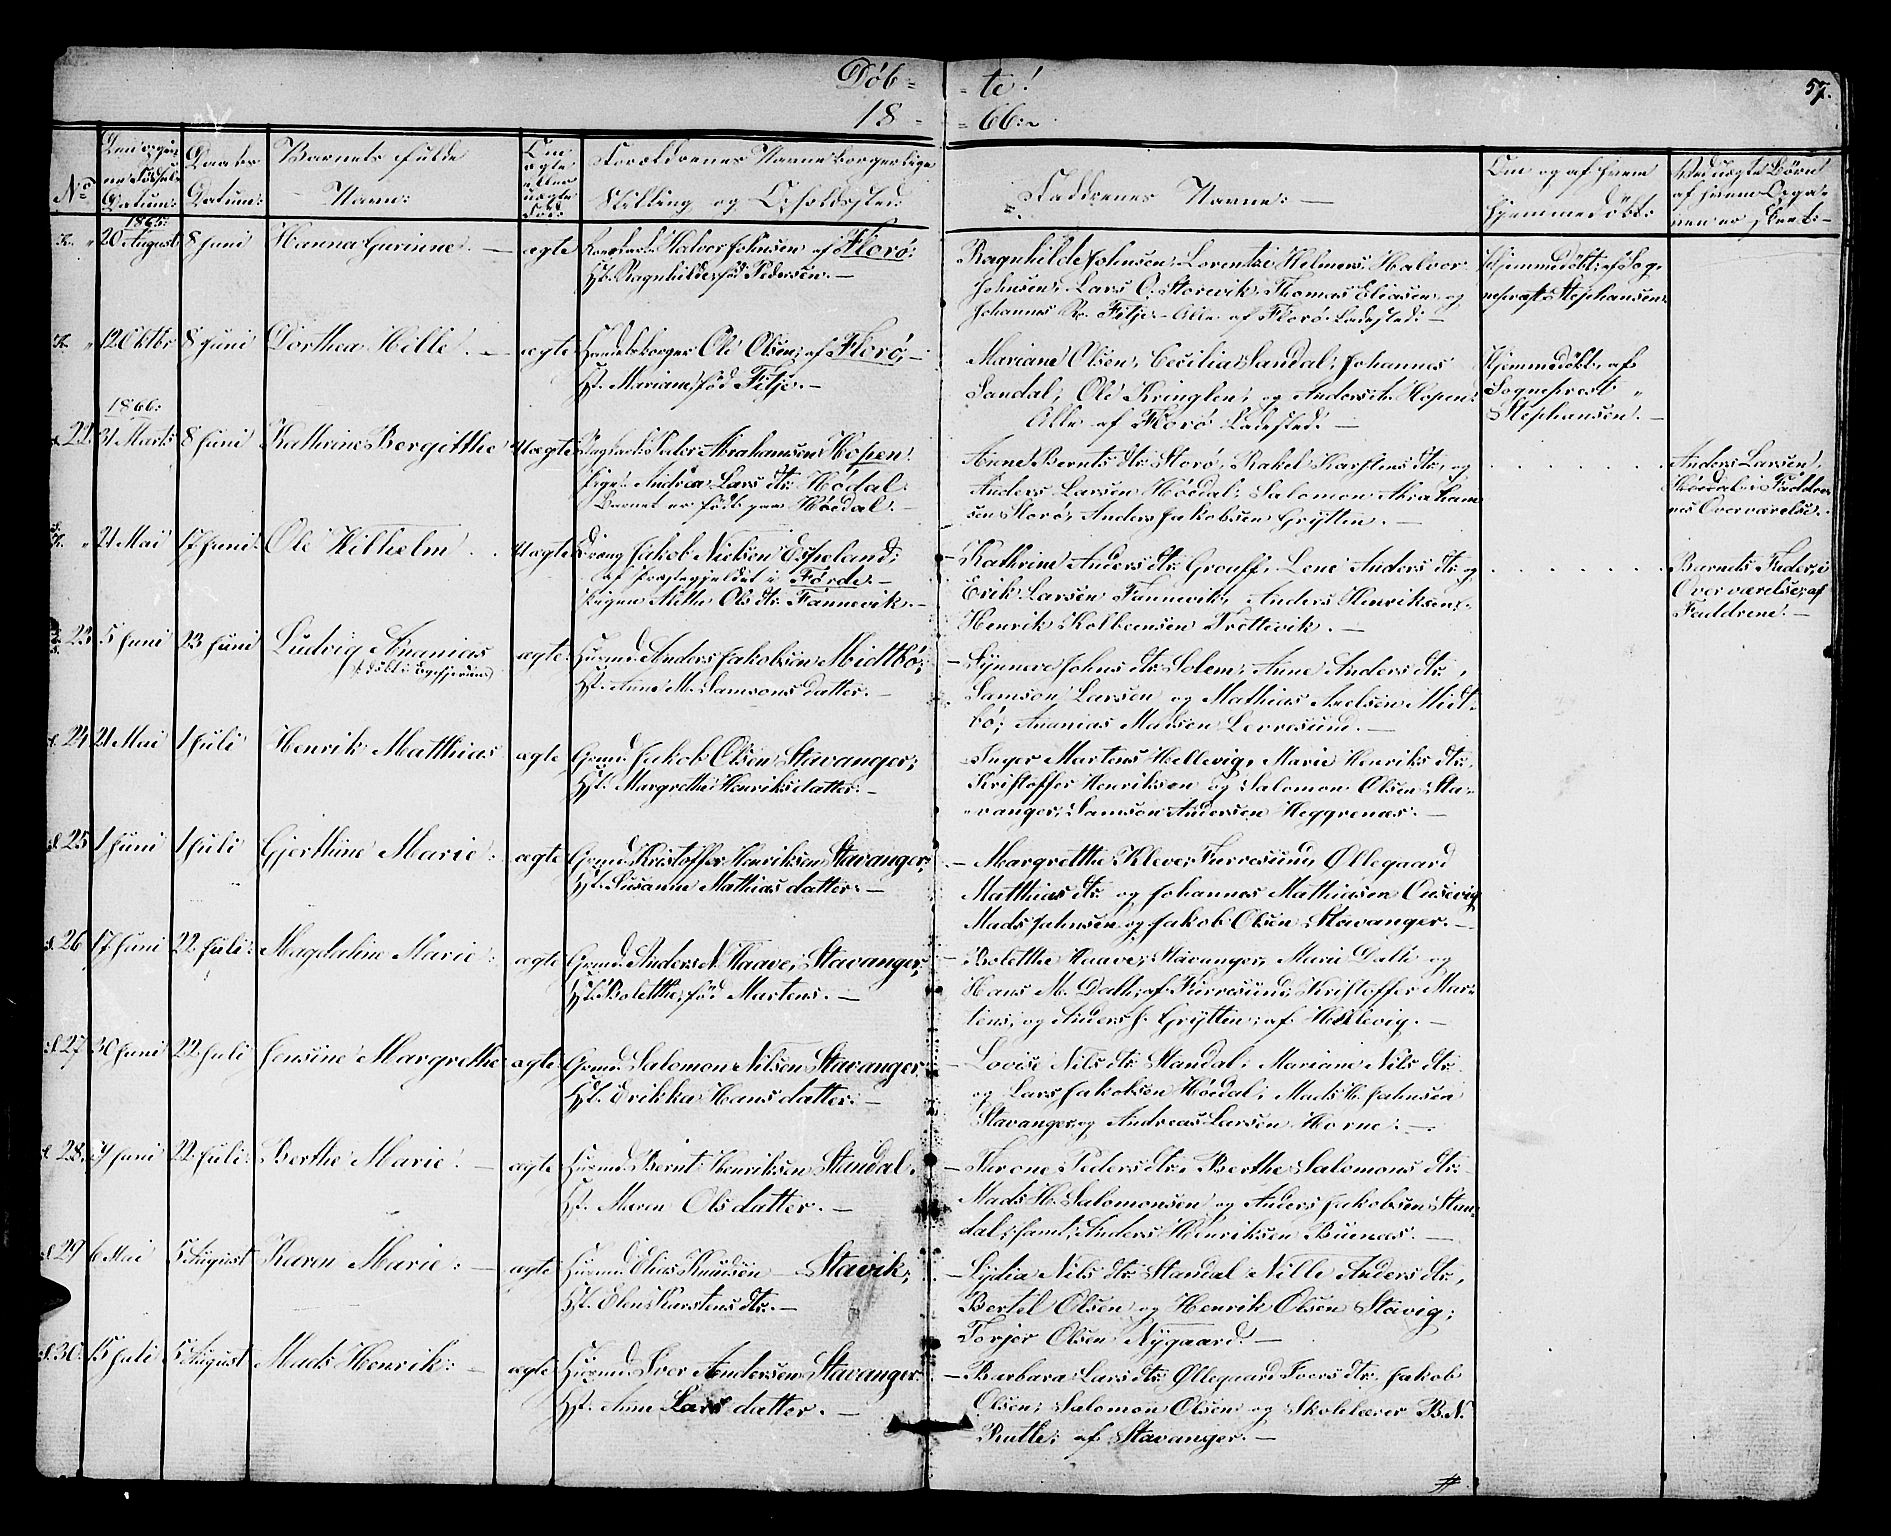 Döb= =te!
57.
18= =66:
No
Datum:
Daabs
Datum:
Barnets fulde
Navn:
Om
ægte
eller
uægte
Föd:
Forældrenes Navne borgerlige
Stilling og Opholdssted:
Faddrenes Navne:
Om og af hvem
hjemmedöbt:
Ved uægte Börn
af hvem Opga-
nen er skeet:
1865:
20 August 8 Juni Hanna Gurinne. ægte Halvor Johnsen af Florö:
H. Ragnhilde, föd Pedersen.
Ragnhilde Johnsen; Lorentze Helmers; Halvor
Johnsen; Lars O. Storevik, Thomas Eliasen og
Johannes R. Fitje. Alle af Florö Ladested:
Hjemmedöbt: af Sog-
neprest Stephansen:
12 Oktbr 8 Juni Dorthea Hille. ægte Handelsborger Ole Olsen; af Florö;
H. Mariane, föd Fitje.
Mariane Olsen; Cecilia Sandal; Johannes
Sandal; Ole Kringlen; og Anders A. Hopen:
Alle af Florö Ladested:
Hjemmedöbt, af
Sogneprest
Stephansen.
1866:
22 31 Marts 8 Juni Kathrine Bergitthe Uægte Peder Abrahamsen Hopen!
Pige: Andrea Lars dtr Höidal.
Barnet er födt paa Höedal.
Anne Bernts dtr Storö, Rakel Karstens dtr, og
Anders Larsen Höedal; Salomon Abraham-
sen Storö, Anders Jakobsen Gryttin.
Anders Larsen
Höedal i Faddre-
nes Overværelse.
21 Mai 17 Juni: Ole Wilhelm Uægte Dreng Jakob Nielsen Espeland;
af Præstegjeldet i Förde.
Pigen Anthe Ols dtr Fannevik.
Kathrine Anders dtr Grouff, Lene Anders dtr og
Erik Larsen Fannevik, Anders Henriksen
Henrik Kolbeensen Trettevik.
Barnets Fader, i
Overværelse af
Faddrene.
23 5 Juni 23 Juni Ludvig Ananias ægte Huusmd. Anders Jakobsen Midtbö;
H. Anne M. Samsons datter.
Synneve Johns dtr Solem; Anne Anders dtr,
Samson Larsen og Mathias Axelsen Midt-
bö; Ananias Madsen Levresund.
24 21 Mai 1 Juli Henrik Matthias ægte Grmd. Jakob Olsen Stavanger;
H. Margrethe Henriksdatter.
Inger Martens Hellevig, Marie Henriks dtr,
Kristoffer Henriksen og Salomon Olsen Sta-
vanger, Samson Andersen Heggrenæs.
25 1 Juni 1 Juli Gjerthine Marie ægte Grmd. Kristoffer Henriksen Stavanger;
H. Susanne Mathias datter:
Margretthe Klever, Furresund, Øllegaard
Matthias dtr og Johannes Mathiasen Ousevig
Mads Johnsen og Jakob Olsen Stavanger.
26 17 Juni 22 Juli: Magdaline Marie ægte Grmd. Anders N. Haave; Stavanger,
H. Boletthe, föd Martens.
Boletthe Haave; Stavanger, Marie Dath og
Hans M. Dath; af Furresund; Kristoffer Mar-
tens; og Anders J. Gryttin; af Hellevig.
27 30 Juni 22 Juli Jensine Margrethe ægte Grmd. Salomon Nilsen Stavanger.
H. Erikka Hans datter:
Lovise Nils dtr Standal; Mariane Nils dtr
og Lars Jakobsen Höedal; Mads H. Johnsen
Stavanger, og Andreas Larsen Horne:
28. 29 Juni 22 Juli: Berthe Marie. ægte Huusmd. Bernt Henriksen Standal.
H. Maren Ols datter.
Throne Peders dtr, Berthe Salomons dtr
Mads H. Salomonsen og Anders Jakobsen Stan-
dal; samt, Anders Henriksen Buenæs.
29 6 Mai 5 August Karen Marie: ægte Huusmd. Elias Knudsen Stavik;
H. Elen Karstens dtr.
Lydia Nils dtr Standal Nille Anders dtr,
Bertel Olsen og Henrik Olsen Stavig;
Torjer Olsen Nygaard.
30. 15 Juli 5 August Mads Henrik: ægte Huusmd. Iver Andersen Stavanger
H. Anne Lars datter.
Barbara Lars dtr Øllegaard Ivers dtr, Jakob
Olsen; Salomon Olsen og Skolelærer B. N.
Rutle; af Stavanger.